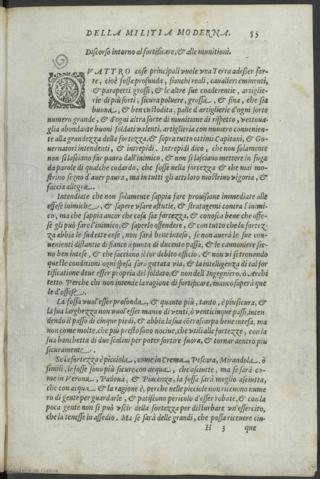 DELLA MILITIA MODERNA. 55
Discorso intorno al fortificare, & alle munitioni.
QVATTRO cose principali vuole vna Terra ad esser for-
te, cioè fossa profonda, fianchi reali, caualieri eminenti,
& parapetti grossi, & le altre sue coderentie, artiglie-
rie di più sorti, sicura poluere, grossa, & fina, che sia
buona, & ben custodita, palle d'artiglierie d'ogni sorte
numero grande, & d'ogni altra sorte di munitione di rispetto, vettoua-
glia abondante buoni soldati valenti, artiglieria con numero conuenien-
te alla grandezza della fortezza & sopra tutto ottimi Capitani, & Go-
uernatori intendenti, & intrepidi. Intrepidi dico, che non solamente
non si lassino far paura dall'inimico, & non si lascino mettere in fuga
da parole di qualche codardo, che fosse nella fortezza & che mai mo-
strino segno d'auer paura, ma in tutti gli atti loro mostrino vigoria, &
faccia allegra.
Intendiate che non solamente sappia fare prouisione immediate alle
offese inimiche, & sapere vsare astutie, & stratagemi contra l'inimi-
co, ma che sappia ancor che cosa sia fortezza, & conosca bene che offe-
se gli può fare l'inimico, & saperlo offendere, & con tutto che la fortez-
za abbia le sudette cose, non sarà bene intesa, se non auerà le sue con-
uenienti distantie di fianco à punta di ducento passa, & le cannoniere sie-
no ben intese, & che faccino il lor debito officio, & non vi si trouando
quelle conditioni ogni spesa sarà gettata via, & la intelligenza di tal for
tificatione deue esser propria del soldato, & non dell'Ingegnero, ò Archi
tetto. Perche chi non intende la ragione di fortificare, manco saperà que
le d'offese.
La fossa vuol'esser profonda, & quanto più, tanto, è più sicura, &
la sua larghezza non vuol'esser manco di venti, ò venticinque passi, inten-
dendo il passo di cinque piedi, & abbia la sua cõtrascarpa bene intesa, ma
non come molte, che più presto sono nociue, che vtili alle fortezze, con la
sua banchetta di due scalini per poter sortire fuora, & tornar dentro più
sicuramente.
Se la fortezza è picciola, come in Crema, Pescara, Mirandola, ò
simili, le fosse sono più sicure con acqua, che asciutte, ma se sarà co-
me in Verona, Padoua, & Vincenza, la fossa sarà meglio asciutta,
che con acqua & la ragione è, perche nelle picciole non si ricerca nume
ro di gente per guardarle, & patiscono pericolo d'esser robate, & con la
poca gente non si può vscir della fortezza per disturbare vn'essercito,
che la tenesse in assedio. Ma se sarà delle grandi, che possa riceuere cin-
H 3 que